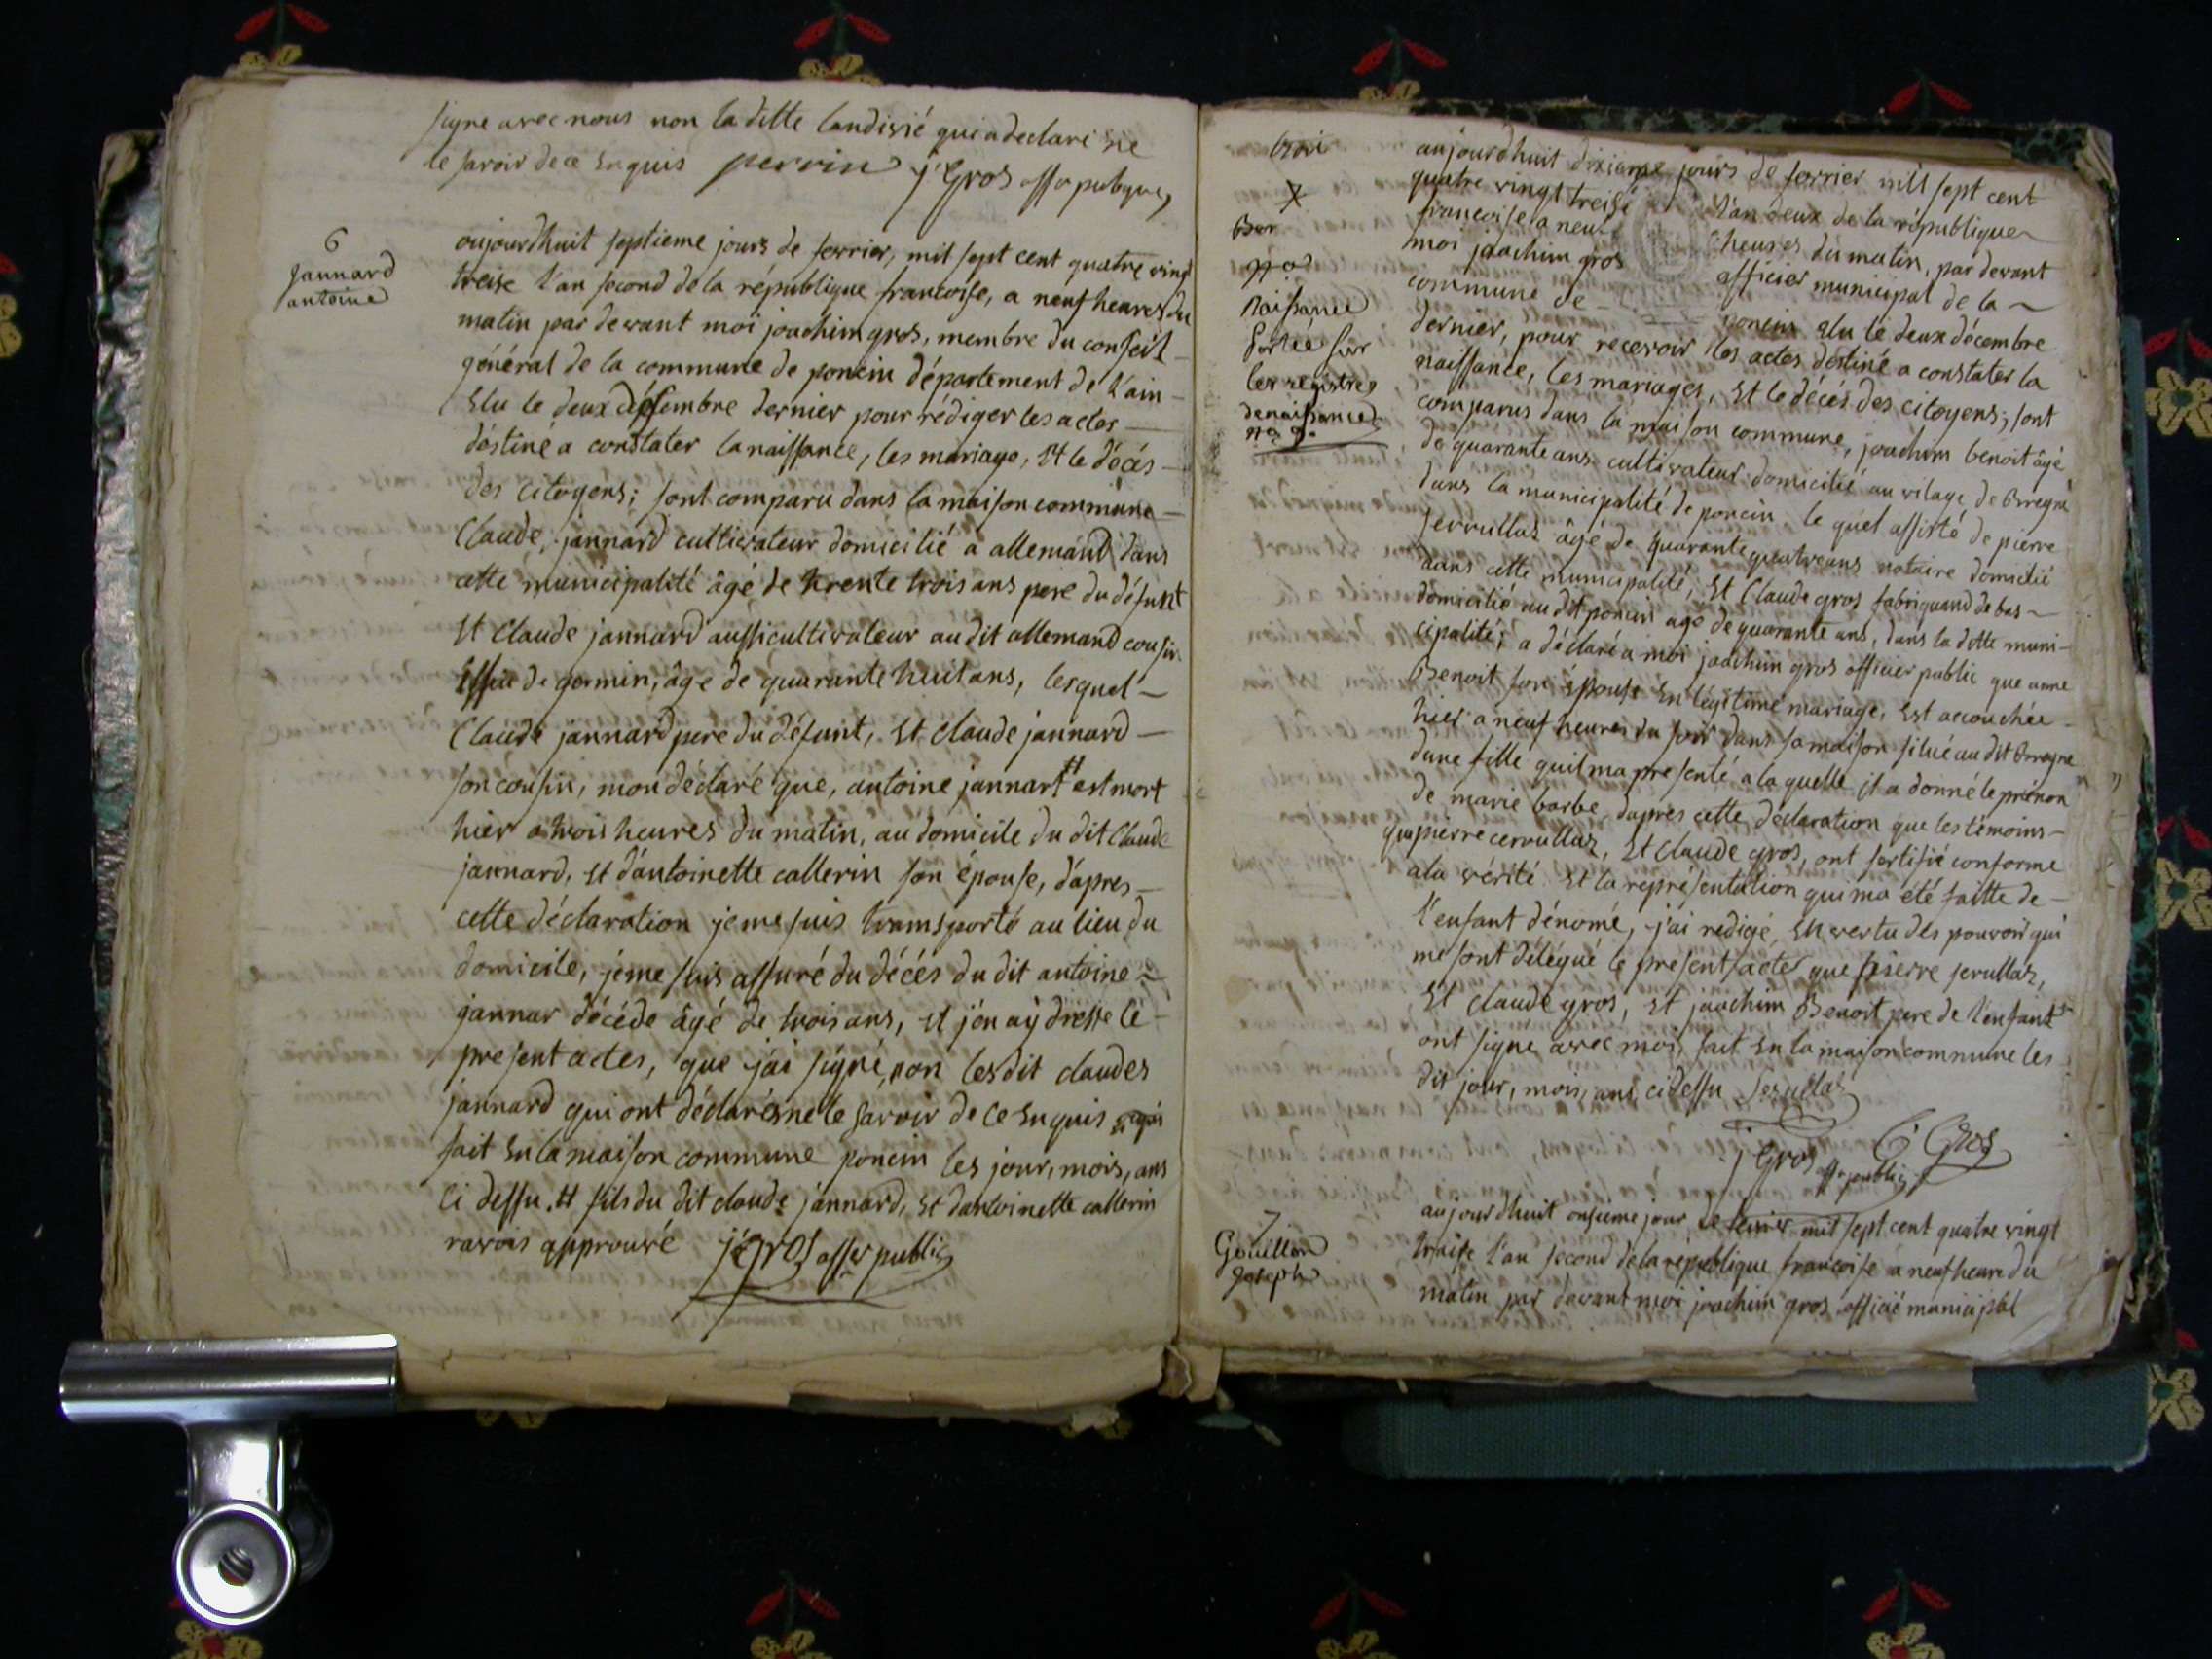 signe avec nous non la ditte landisié qui a declaré ne
le savoir de ce enquis perrin j Gros offr publique
6
Jannard
antoine
aujourdhuit septieme jours de ferrier, mil sept cent quatre vingt
treise l'an second de la république francoise, a neuf heures du
matin par devant moi joachim gros, membre du conseil
général de la commune de poncin département de l'ain
Elu le deux decembre dernier pour rédiger les actes
déstiné a constater la naissance, les mariage, Et le décés
des citoyens; sont comparu dans la maison commune
Claude, jannard cultivateur domicilié a allemand dans
cette municipalité âgé de trente trois ans pere du défunt
Et Claude jannard aussi cultivateur au dit allemand cousin
issue de germin, âgé de quarante huit ans, lesquel
Claude jannard pere du défunt, Et claude jannard
son cousin, mon déclaré que, antoine jannart # est mort
hier a trois heures du matin, au domicile du dit Claude
jannard, Et d'antoinette callerin son épouse, d'apres
cette déclaration je me suis transporté au lieu du
domicile, je me suis assuré du décés du dit antoine
jannar décédé âgé de trois ans, Et j'en aÿ dressé le
present actes, que j'ai signé, non lesdit claudes
jannard qui ont déclarés ne le savoir de ce enquis
fait en la maison commune poncin les jour, mois, ans
ci dessu. # fils du dit claude jannard, Et dantoinette callerin
ravois approuvé j Gros offer public
trai
naissance
portée sur
les registres
de naissance
no 9.
aujourdhuit dixieme jours de ferrier mill sept cent
quatre vingt treise l'an deux de la république
francoise a neuf heures du matin, par devant
moi joachim gros officier municipal de la
commune de poncin elu le deux décembre
dernier, pour recevoir les actes déstiné a constater la
naissance, les mariages, Et le décés des citoyens; sont
comparus dans la maison commune, joachim benoit âgé
de quarante ans cultivateur domicilié au vilage de
dans la municipalité de poncin. le quel assisté de pierre
servullas âgé de quarante quatre ans notaire domicilié
dans cette municipalité; Et Claude gros fabriquand de bas
domicilié au dit poncin age de quarante ans, dans la ditte muni-
cipalité; a déclaré a moi joachim gros officier public que anne
Benoit son épouse en légitime mariage, est accouchée
hier a neuf heures du soir dans sa maison situé au dit
dune fille quil ma presenté a la quelle il a donné le prénon
de marie barbe, dapres cette déclaration que les témoins
que pierre cervullas, Et claude gros, ont sertifié conforme
a la vérité Et la représentation qui ma été faitte de
l'enfant dénomé, j'ai redigé, En vertu des pouvoir qui
me sont délégué le present actes que pierre serullas,
Et claude gros, Et joachim Benoit pere de l'enfant
ont signé avec moi, fait en la maison commune les
dit jour, mois, ans, ci dessu Serullas
j Gros offr public C Gros
7
Gouillon
joseph
aujourdhuit onsieme jour de fevrier mil sept cent quatre vingt
traise l'an second de la république francoise a neuf heure du
matin par devant moi joachim gros officié manicipal